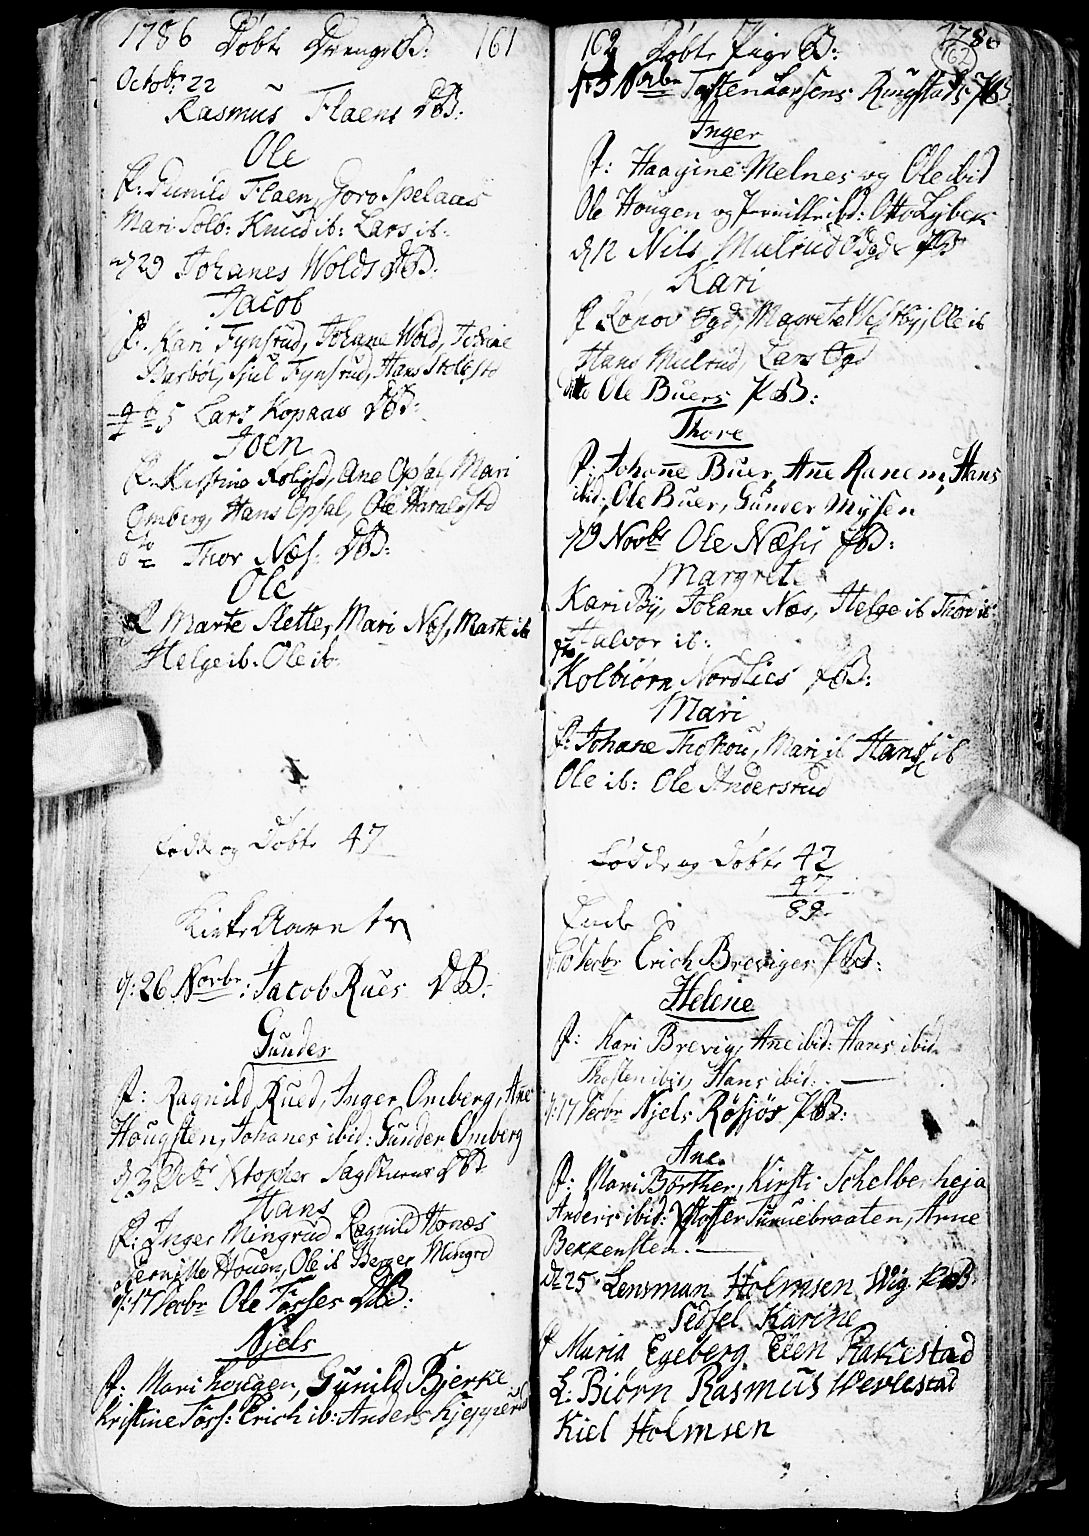 1786 Døbte Drenge B: 161
Octobr 22
Rasmus Flaens DB:
Ole
F: Gunild Flaen, Goro Spelaas
Mari Solb: Knud ib: Lars ib.
d 29 Johanes Wolds DB:
Jacob
F: Kari Fynsrud, Johane Wold,
Barböl, Sjul Fynsrud, Hans
5 Lars Kopaas DB:
Joen
F: Kirstine Ane Opsal, Mari
Omberg, Hans Opsal, Ole Haraldstd
Thor Næs: DB:
Ole
F Marte Slette, Mari Næs, Marte ib
Helge ib: Ole ib:
Fødde og Døbte 47
Kirke Navnet
d: 26 Novbr: Jacob Rues DB:
Gunder
F: Ragnild Rued, Inger Omberg, Ane
Hougsten, Johanes ibid: Gunder Omberg
d 3 Debr Xtopher DB
Hans
F: Inger Mingrud Ragnild Honæs
Pernille Houen, Ole ib Berger Mingrd
d: 17 Decbr Ole Torses DB:
Niels
F: Mari Hougen, Gunild Bjerke
Kristine Tors: Erich ib: Anders
162 Døbte Pige B: 1786
162
d 5 Novbr Tosten Larsens Ringstads PB:
Inger
F: Haagine Melnes og Ole ibid
Ole Hougen og Pernille ibd: Otto Lybek
d 12 Nils Mulrud PB
Kari
F Rönov Ogd, Magrete Westby, Ole ib
Hans Mulrud, Lars Ogd
dto Ole Buers PB:
Thore
F: Johane Buer, Ane Ranem, Hans
ibid: Ole Buer, Gunder Mysen
d 19 Novbr Ole Næsis PB:
Margrete
Kari By, Johane Næs, Helge ib Thore ib:
Halvor ib:
dto
Kolbiørn Nordlies PB:
Mari
F: Johane Mari ib Hans ib
Ole ib: Ole Andersrud
Fødde og Døbte 42
47
89
Ende
d 10 Decbr Erich Breviger PB:
Helene
F: Kari Brevig, Ane ibid: Hans ibid
Thosten ibid, Hans ibid:
d: 17 Decbr Niels Rösjös PB:
Ane
F: Mari Børther, Kirsti Schelberheja
Anders ibid: Xtoffer Tunuebraaten, Arne
Bekkensten.
d 25 Lensman Holmsen Wig PB:
Sedsel Karine
F Maria Egeberg Elen Rakestad
L: Biørn Rasmus Wevlestad
Kiel Holmsen